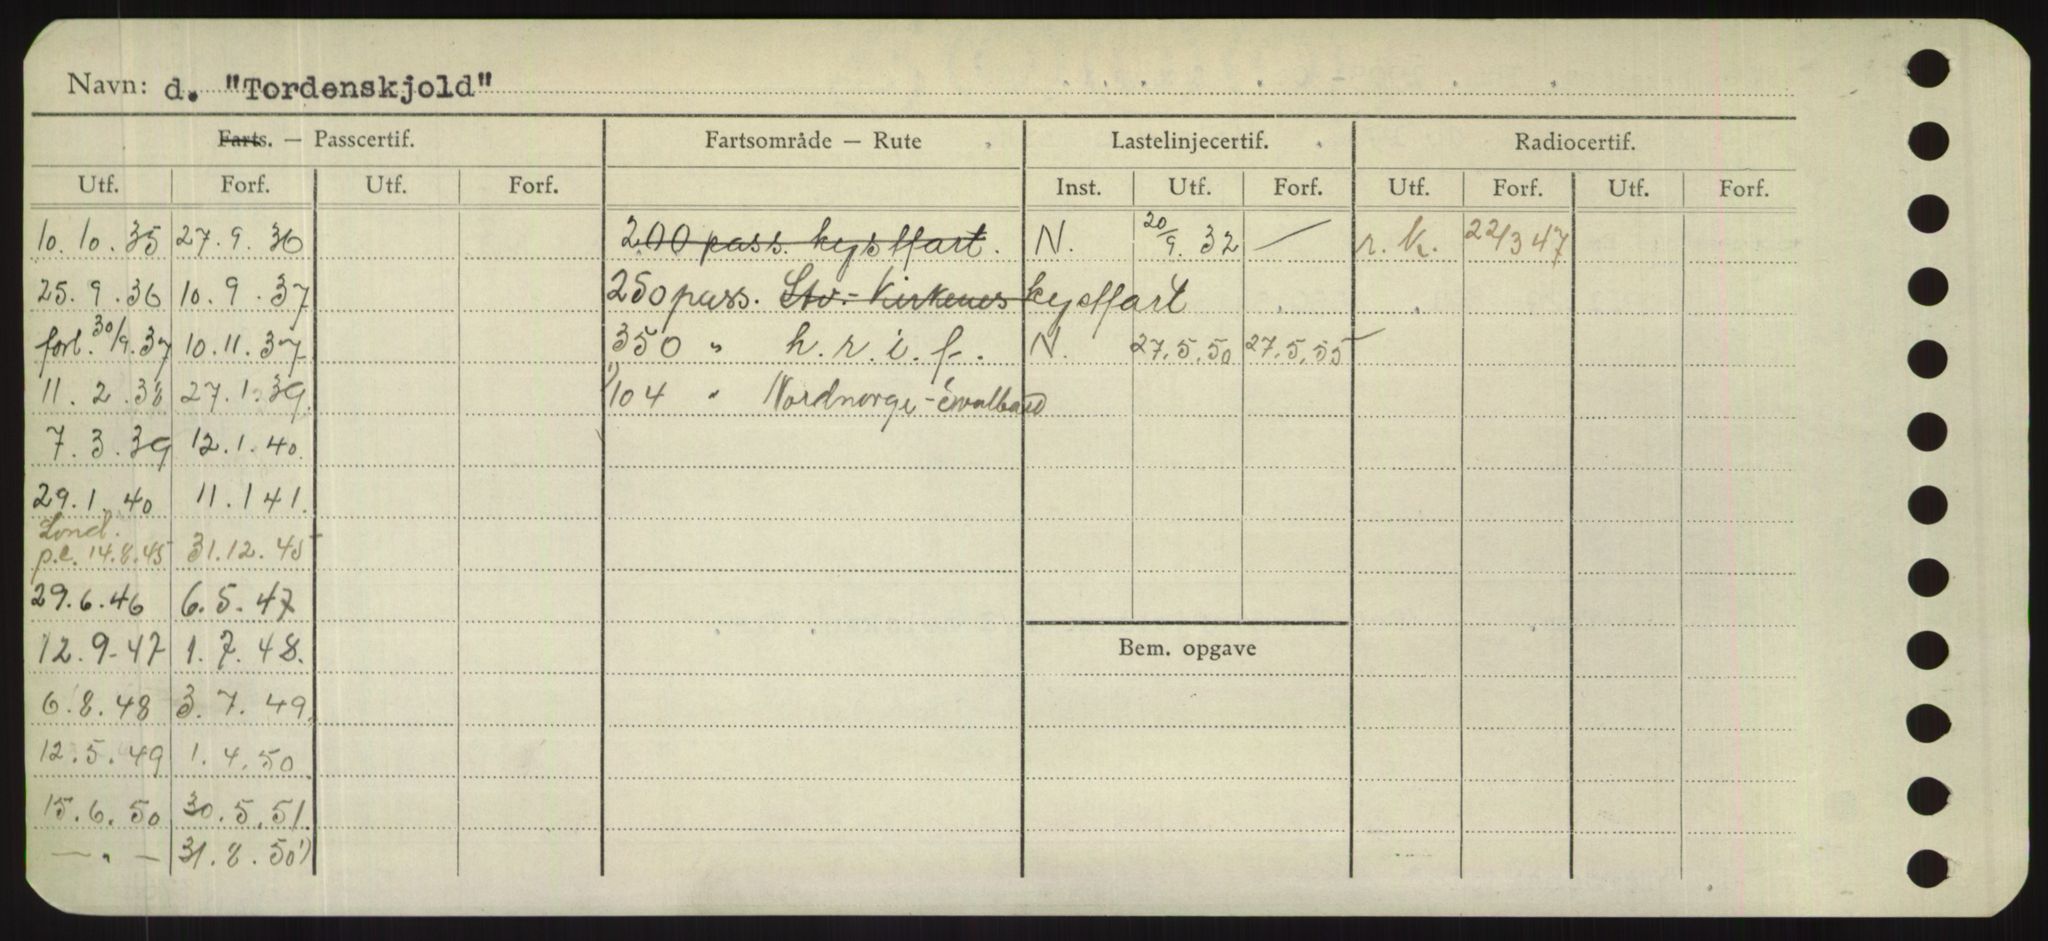 Navn: d. "Tordenskjold"
Farts. — Passcertif. Fartsområde — Rute Lastelinjecertif. Radiocertif.
Utf. Forf. Utf. Forf. Inst. Utf. Forf. Utf. Forf. Utf. Forf.
10.10.35 27.9.36 200 pass. kystfart. N. 20/9.32 — r.k. 22/3 47
25.9.36 10.9.37 250 pass. Stv.-Kirkenes kystfart
forl. 30/9.37 10.11.37 350 " h.r.i.f. N. 27.5.50 27.5.55
11.2.38 27.1.39 1) 104 " Nordnorge-Svalbard
7.3.39 12.1.40
29.1.40 11.1 41.
Lond.
p.c. 14.8.45 31.12.45
29.6.46 6.5.47
12.9-47 1.7.48.
Bem. opgave
6.8.48 3.7.49.
12.5.49 1.4.50
15.6.50 30.5.51.
— " — 31.8.50 1)